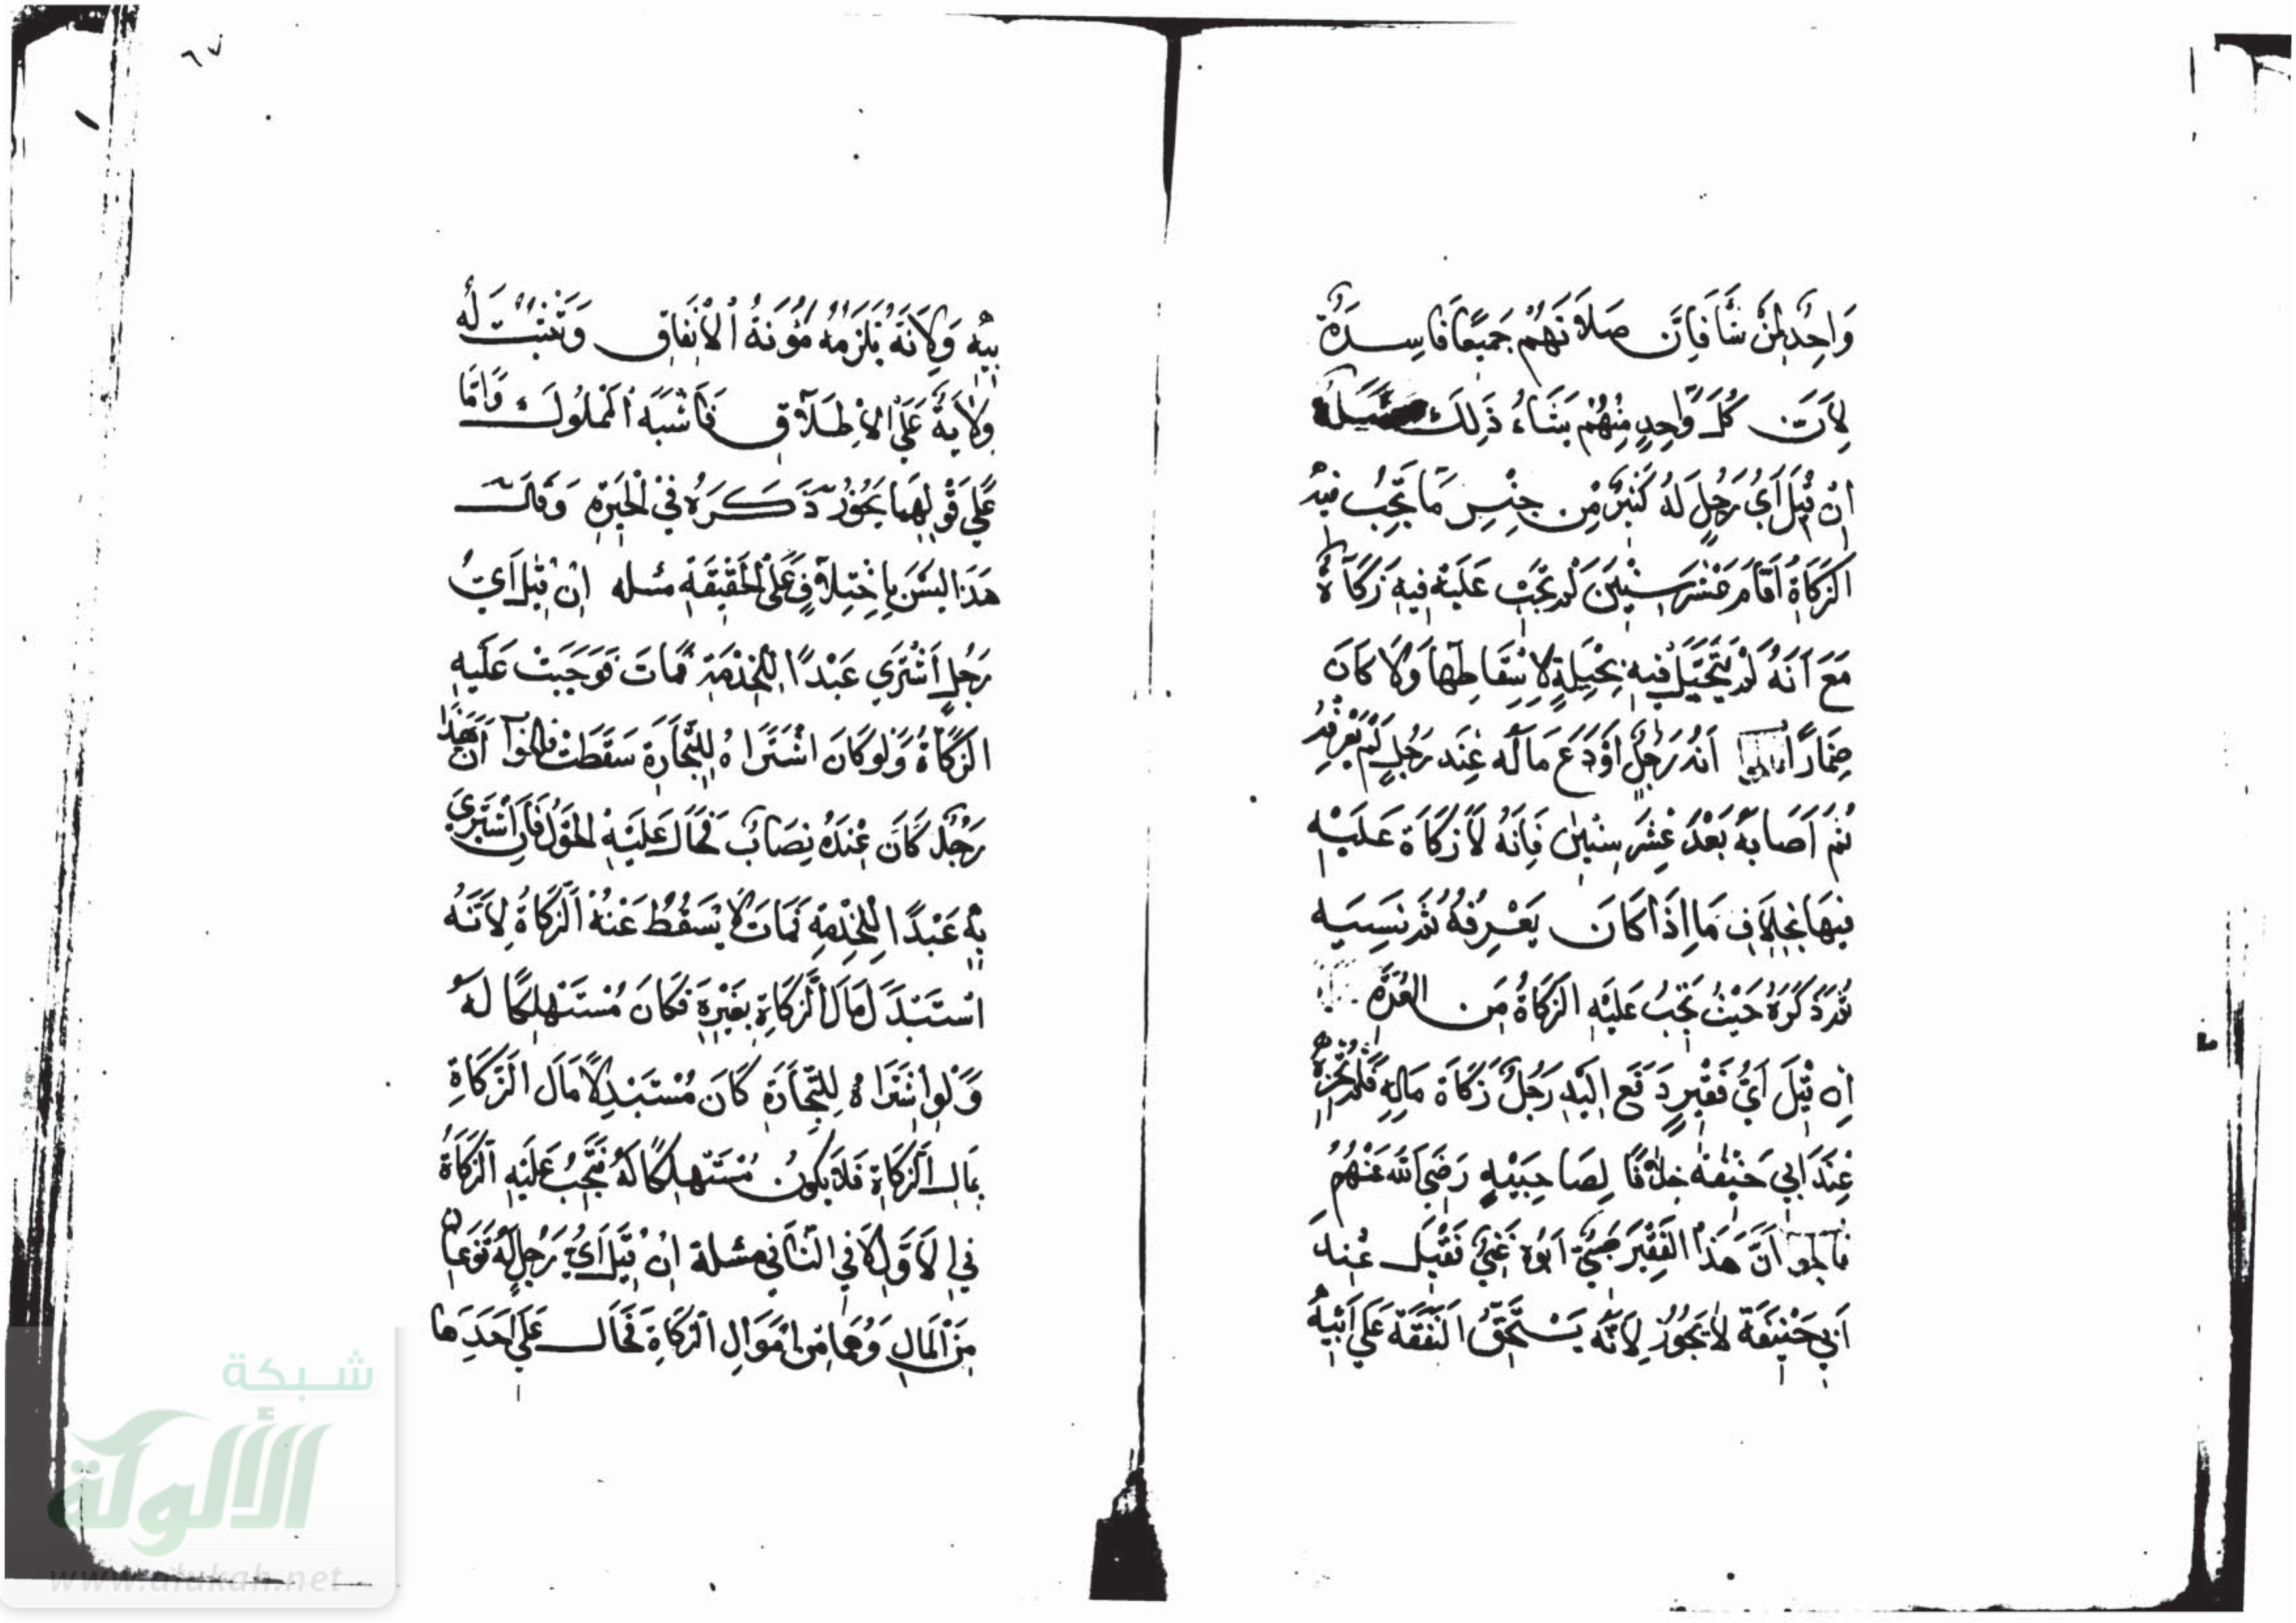 ٦٧
وَاحِدٍ لِمَنْ شَا فَاِنَّ صَلَاتَهُمْ جَمِيْعًا فَاسِدَةٌ
لِاَنَّ كُلَّ وَاحِدٍ مِنْهُمْ يَشَاءُ ذَلِكَ مسَئلَة
اِنْ قِيْلَ اَيُّ رَجُلٍ لَهُ كَثِيرٌ مِّن جِنْسِ مَا تَجِبُ فيْه
الزَكَاةُ اَقَامَ عَشْرَ سِنْيِنَ لَمْ تَجِبْ عَلَيْهِ فِيهِ زَكَاةٌ
مَعَ اَنَهُ لَمْ يَتَحَيَّلْ فيِهِ بِحْيِلَةٍ لِاسْقَاطِهَا وَلَا كَانَ
ضِمَارًا الجواب اَنهُ رَجُلٌ اَوْدَعَ مَا لَهُ عِنْد رَجُلٍ لَمْ يَعْرِفْهُ
ثُمَ اَصَابَهُ بَعْدَ عَشَرِ سِنْيِن فَاِنَهُ لَا زَكَاةَ عَلَيْهِ
فِيهَا بِخِلَافِ مَا اِذَا كَانَ يَعْرِفُهُ ثم نَسِيَه
ثم ذَكَرَهُ حَيْثُ تَجِبُ عَلَيْهِ الزَكَاةُ مِن العُدَّه
اِن قِيْلَ اَيُّ فَقْيِرٍ دَفَعَ اِلَيْهِ رَجُلٌ زَكَاةَ مَالِهِ فَلَم تُجْزِهْ
عِنْدَ ابِي حَنْيِفَة خِلَافًا لِصَاحِبَيْهِ رَضِيَ اللَّه عَنْهُمْ
فالجواب اَنَّ هَذَا الفَقْيِرَ صَبِيٌّ اَبُوهُ غَنِيٌّ فَقِيْلَ عِنْدَ
اَبِي حَنْيِفَة لَا يَجُوْزُ لِاَنَّهُ يَسْتَحِقُ النَفَقَةَ عَلَى اَبْيِهِ
بِيْهِ وَلِاَنَهُ يَلْزَمُهُ مُؤُنَةُ الْاِنْفَاقِ وَتَثْبُتُ لَهُ
وِلَايَةٌ عَلَى الْاِطْلَاقِ فَاَشْبَهَ الْمملُوكَ وَامَّا
عَلَي قَوْلِهِمَا يَجُوْزُ ذَكَرَهُ فِي الْحَيْرَةِ وَقَالَ
هَذَا لَيْسَ بِاخْتِلَافٍ عَلَى الْحَقْيِقَةِ مسئله اِنْ قِيْلَ اَيُّ
رَجُلٍ اَشْتَرَي عَبْدًا لِلْخِدْمَةِ فَمَاتَ فَوَجَبَتْ عَلَيْهِ
الزَكَاةُ وَلَوْ كَانَ اشْتَرَاهُ لِلتِّجَارَةِ سَقَطَتْ فالجواب اَنَّ هَذَا
رَجُلٌ كَانَ عِنْدَهُ نِصَابٌ فَحَالَ عَلَيْهِ الحَوْلُ فَاِنِ اشْتَرَي
بِهِ عَبْدًا لِلْخِدْمَةِ فَمَاتَ لَا يَسْقُطُ عَنْهُ الزَكَاةُ لِاَنَّهُ
اسْتَبْدَلَ مَالَ الزَّكَاةِ بِغَيْرِهِ فَكَانَ مُسْتَهْلِكًا لَهُ
وَلَوِ اشْتَرَاهُ لِلتِّجَارَةِ كَانَ مُسْتَبْدِلًا مَالَ الزَّكَاةِ
بِمَالِ الزَّكَاةِ فَلَا يَكُوْنُ مُسْتَهْلِكًا لَهُ فَتَجِبُ عَلَيْهِ الزَكَاةُ
فِي الْاَوَّلِ لَا فِي الثَّانِي مسْئلة اِنْ قِيْلَ اَيُّ رَجُلٍ لَهُ نَوْعَانِ
مِنَ الْمَالِ وَهُمَا مِن اَمْوَالِ الزَكَاةِ فَحَالَ عَلَي اَحَدِهِمَا
شبكة
الألوكة
www.alukah.net